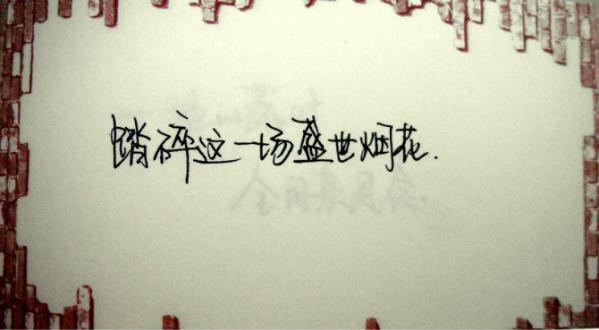 踏碎这一场盛世烟花.